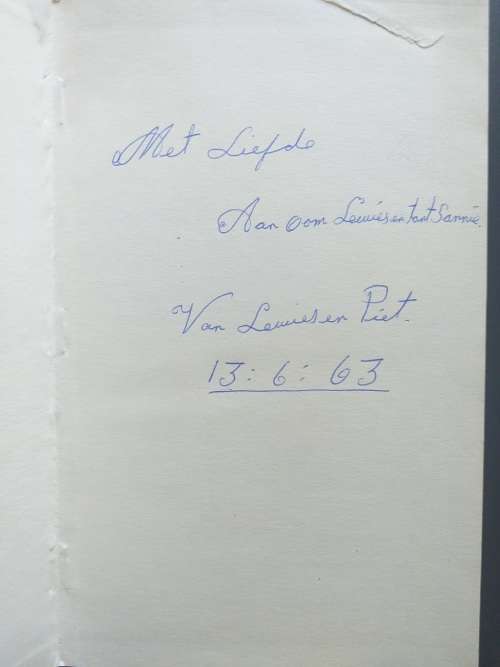 Met Liefde
Aan oom Lewies en tant Sannie.
Van Lewies en Piet.
13:6:63